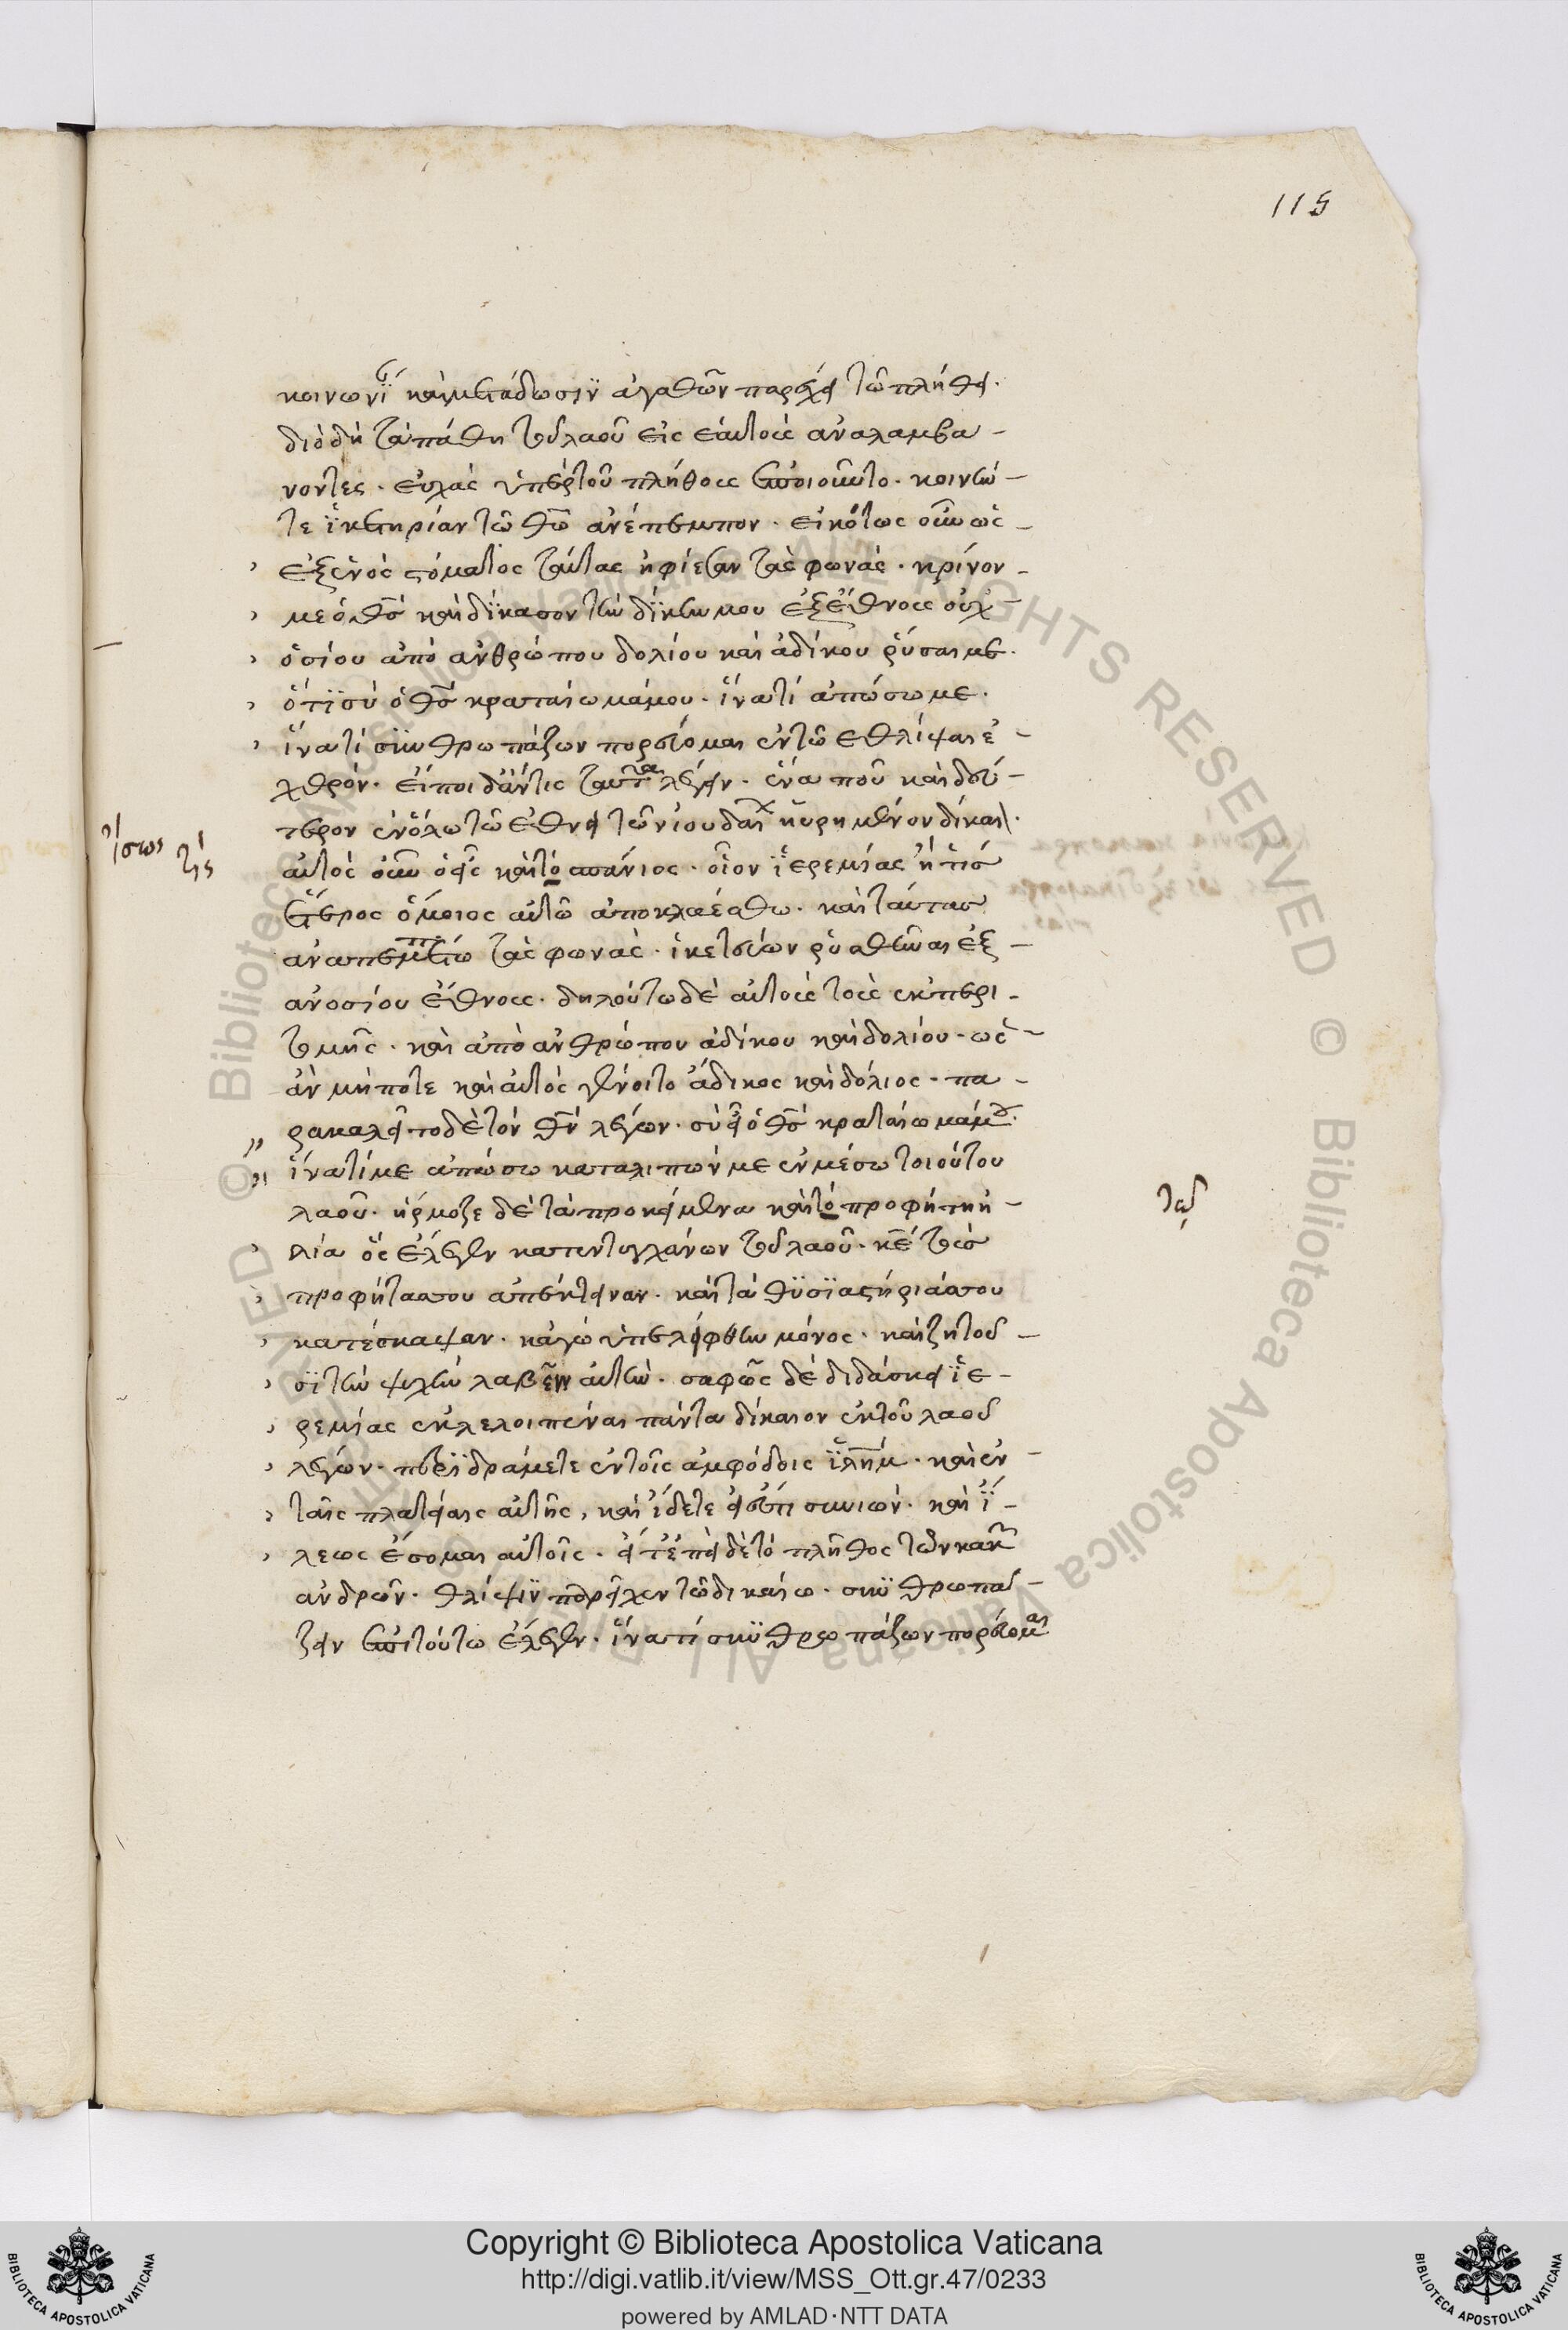 115
κοινωνεῖ καὶ μετάδωσιν ἀγαθῶν παρέχει τῶ πλήθει.
διὸ δὴ τὰ πάθη τοῦ λαοῦ εἰς ἑαυτοὺς ἀναλαμβά-
νοντες. εὐχὰς ὑπὲρ τοῦ πλήθους ἐποιοῦντο. κοινήν
τε ἱκετηρίαν τῶ θῶ ἀνέπεμπον. εἰκότως οὖν ὡς
ἐξ ἑνὸς στόματος ταύτας ἠφίεσαν τὰς φωνάς. κρῖνόν
με ὁ θς καὶ δίκασον τὴν δίκην μου ἐξ ἔθνους οὐχ
ὁσίου ἀπὸ ἀνθρώπου δολίου καὶ ἀδίκου ῥύσαι με.
ὅτι σὺ ὁ θς κραταίωμά μου. ἵνα τί ἀπώσω με.
ἵνα τί σκυθρωπάζων πορεύομαι ἐν τῶ ἐκθλίψαι ἐ-
χθρόν. εἴποι δ' ἄν τις ταῦτα λέγειν. ἕνα που καὶ δεύ-
τερον ἐν ὅλω τῶ ἔθνει τῶν ἰουδαί εὑρημένον δίκαι.
ἴσως
τίς
αὐτὸς οὖν ὁ εἷς καὶ τὸ σπάνιος. οἷον ἱερεμίας ἤ τις
ἕτερος ὅμοιος αὐτῶ ἀποκλαέσθω. καὶ ταύτας
ἀναπεμπέτω τὰς φωνάς. ἱκετεύων ῥυσθῆναι ἐξ
ἀνοσίου ἔθνους. δηλούτω δὲ αὐτοὺς τοὺς ἐκ περι-
τομῆς. καὶ ἀπὸ ἀνθρώπου ἀδίκου καὶ δολίου. ὡς
ἂν μήποτε καὶ αὐτὸς γένοιτο ἄδικος καὶ δόλιος. πα-
ρακαλείτο δὲ τὸν θν λέγων. σὺ εἶ ὁ θς κραταίωμά μου.
ἵνα τί με ἀπώσω καταλιπών με ἐν μέσω τοιούτου
λαοῦ. ἥρμοζε δὲ τὰ προκείμενα καὶ τὸ προφήτη ἡ-
λία ὃς ἔλεγεν κατεντυγχάνων τοῦ λαοῦ. κε τοὺς
προφήτας σου ἀπέκτειναν. καὶ τὰ θυσιαστήριά σου
κατέσκαψαν. κἀγὼ ὑπελείφθην μόνος. καὶ ζητοῦ-
σι τὴν ψυχήν λαβεῖν αὐτήν. σαφῶς δὲ διδάσκει ἱε-
ρεμίας ἐκλελοιπέναι πάντα δίκαιον ἐκ τοῦ λαοῦ
λέγων. περιδράμετε ἐν τοῖς ἀμφόδοις ἱλημ. καὶ ἐν
ταῖς πλατείαις αὐτῆς, καὶ ἴδετε εἰ ἔστι συνιών. καὶ ἵ-
λεως ἔσομαι αὐτοῖς. εἶτ' ἐπεὶ δὲ τὸ πλῆθος τῶν κακῶν
ἀνδρῶν. θλίψιν παρεῖχεν τῶ δικαίω. σκυθρωπά-
ζειν ἐπὶ τούτω ἔλεγεν. ἵνα τί σκυθρωπάζων πορεύομαι
Copyright © Biblioteca Apostolica Vaticana
http://digi.vatlib.it/view/MSS_Ott.gr.47/0233
powered by AMLAD·NTT DATA